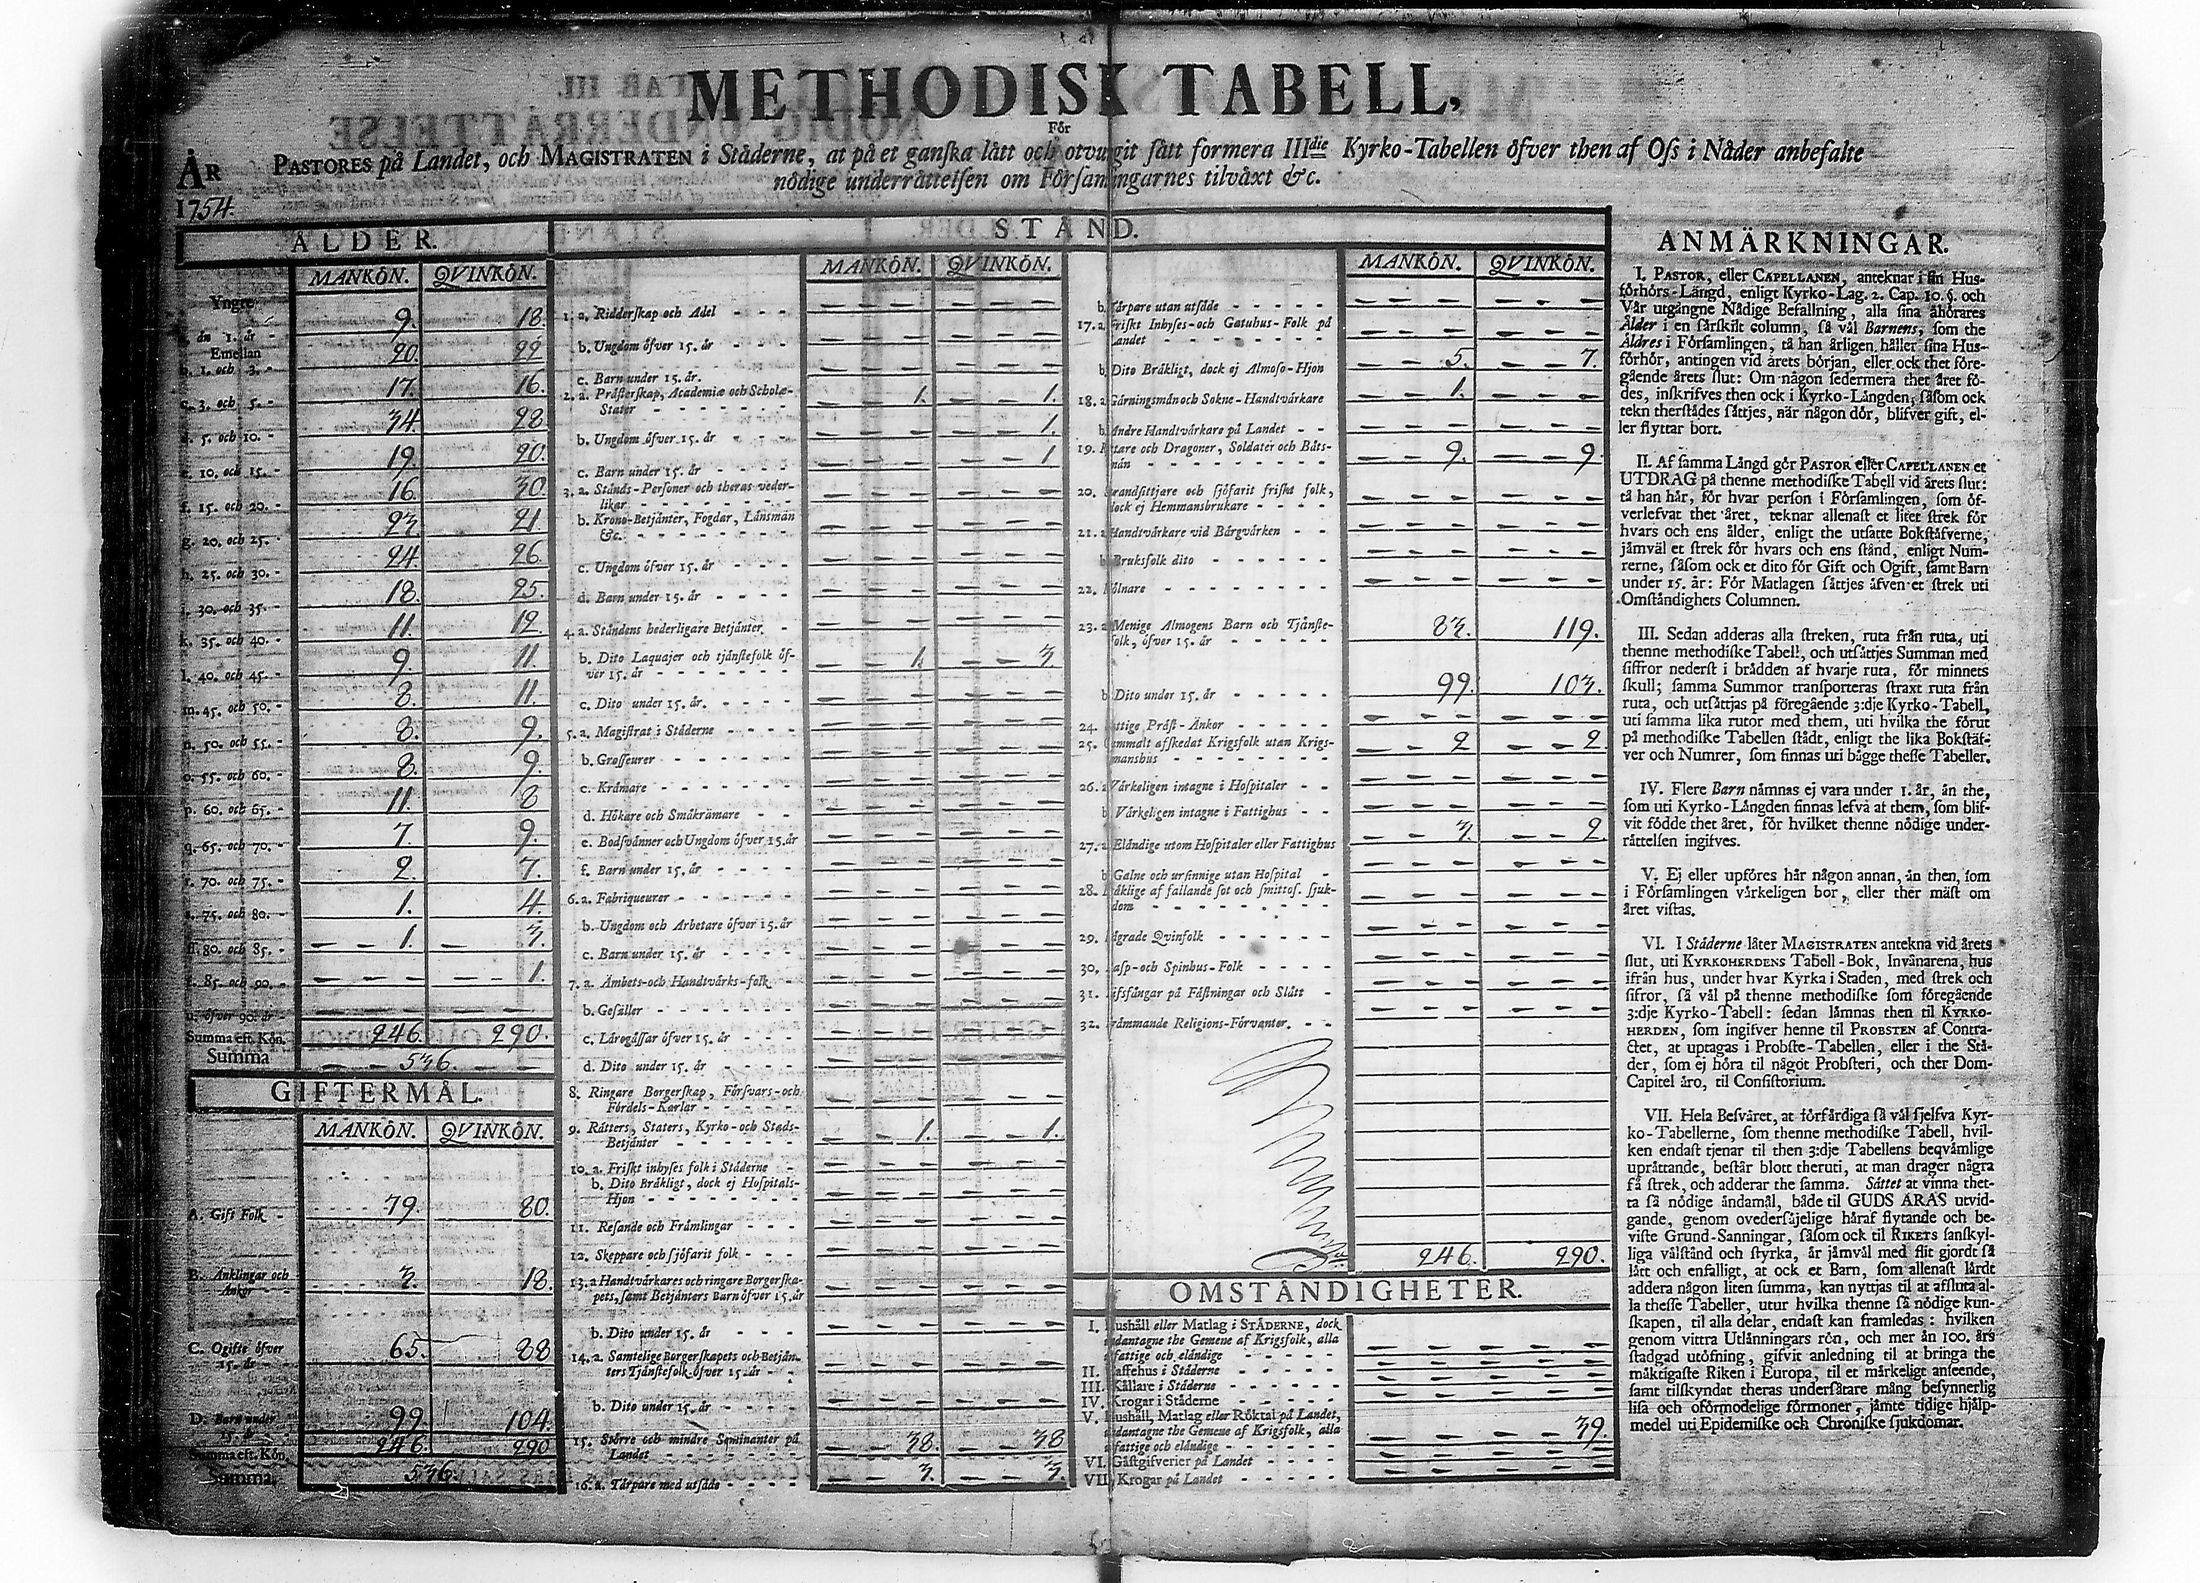 METHODISK TABELL,
För
PASTORES på Landet, och MAGISTRATEN i Städerne, at på et ganska lätt och otvungit sätt formera IIIdie Kyrko-Tabellen öfver then af Oss i Nåder anbefalte
nödige underrättelsen om Församlingarnes tilväxt &c.
ÅR
1754.
ÅLDER.
MANKÖN. QVINKÖN.
Yngre
än 1. år - 9. 18.
Emellan
b. 1. och 3. - 20. 22
c. 3. och 5. - 17. 16.
d. 5. och 10. - 34 28
e. 10. och 15. - 19. 20.
f. 15. och 20. - 16. 30.
g. 20. och 25. - 23. 21
h. 25. och 30. - 24. 26.
i. 30. och 35. - 18. 25.
k. 35. och 40. - 11. 12
l. 40. och 45. - 9. 11.
m. 45. och 50. - 8. 11.
n. 50. och 55. - 8. 9.
o. 55. och 60. - 8. 9.
p. 60. och 65. - 11. 8
q. 65. och 70. - 7. 9.
r. 70. och 75. - 2. 7.
s. 75. och 80. - 1. 4.
ss. 80. och 85. - 1. 3.
t. 85. och 90. - - 1.
u. öfver 90. år - -
Summa eft. Kön. 246. 290.
Summa 536.
GIFTERMÅL.
MANKÖN. QVINKÖN.
A. Gift Folk - 79. 80.
B. Änklingar och
Änkor - - 3. 18.
C. Ogifte öfver
15. år - - 65. 88
D. Barn under
15. år 99. 104.
Summa eft. Kön. 246. 290
Summa. 536.
STÅND.
MANKÖN. QVINKÖN.
1. a. Ridderskap och Adel - - -
b. Ungdom öfver 15. år - - -
c. Barn under 15. år.
2. a. Prästerskap, Academiæ och Scholæ-
Stater - - - 1. 1.
b. Ungdom öfver 15. år - - - 1.
c. Barn under 15. år - - - 1
3. a. Stånds-Personer och theras veder-
likar - - -
b. Krono-Betjänter, Fogdar, Länsmän
&c. - - -
c. Ungdom öfver 15. år - - -
d. Barn under 15. år - - -
4. a. Ståndens hederligare Betjänter. -
b. Dito Laquajer och tjänstefolk öf-
ver 15. år - - - 1. 3.
c. Dito under 15. år. - - -
5. a. Magistrat i Städerne - - -
b. Grosseurer - - -
c. Krämare - - -
d. Hökare och Småkrämare - -
e. Bodsvänner och Ungdom öfver 15. år
f. Barn under 15. år - - -
6. a. Fabriqueurer - - -
b. Ungdom och Arbetare öfver 15. år
c. Barn under 15. år - - -
7. a. Ämbets- och Handtvärks-folk. -
b. Gesäller - - -
c. Lärogåssar öfver 15. år - - -
d. Dito under 15. år - - -
8. Ringare Borgerskap, Försvars- och
Fördels-Karlar - - -
9. Rätters, Staters, Kyrko- och Stads-
Betjänter - - - 1. 1.
10. a. Friskt inhyses folk i Städerne -
b. Dito Bräkligt, dock ej Hospitals-
Hjon - - -
11. Resande och Främlingar - - -
12. Skeppare och sjöfarit folk - - -
13. a Handtvärkares och ringare Borgerska-
pets, samt Betjänters Barn öfver 15. år
b. Dito under 15. år - - -
14. a. Samtelige Borgerskapets och Betjän-
ters Tjänstefolk öfver 15. år - -
b. Dito under 15. år - - -
15. Större och mindre Seminanter på
Landet - - - 38 38
16. a. Tärpare med utsäde - - - 3. 3.
MANKÖN. QVINKÖN.
b Tärpare utan utsäde - - -
17. a Friskt Inhyses- och Gatuhus-Folk på
Landet - - -
b Dito Bräkligt, dock ej Almoso-Hjon 5. 7.
18. a Gärningsmän och Sokne-Handtvärkare 1.
b Andre Handtvärkare på Landet - -
19. Ryttare och Dragoner, Soldater och Båts-
män - - - 9. 9.
20. Strandsittjare och sjöfarit friskt folk,
dock ej Hemmansbrukare - - -
21. a Handtvärkare vid Bärgvärken - -
b Bruksfolk dito - - -
22. Mölnare - - -
23. a Menige Almogens Barn och Tjänste-
folk, öfver 15. år - - - 83. 119.
b Dito under 15. år - - - 99. 103.
24. Fattige Präst-Änkor - - -
25. Gammalt afskedat Krigsfolk utan Krigs-
manshus - - - 2 2
26. a Värkeligen intagne i Hospitaler - -
b Värkeligen intagne i Fattighus - -
27. a Eländige utom Hospitaler eller Fattighus 3. 2.
b Galne och ursinnige utan Hospital -
28. Bräklige af fallande sot och smittos. sjuk-
dom - - -
29. Lägrade Qvinfolk - - -
30. Rasp- och Spinhus-Folk - - -
31. Lifsfångar på Fästningar och Slått -
32. Främmande Religions-Förvanter. - -
246. 290.
OMSTÄNDIGHETER.
I. Hushåll eller Matlag i STÄDERNE, dock
undantagne the Gemene af Krigsfolk, alla
fattige och eländige - - -
II. Caffehus i Städerne - - -
III. Källare i Städerne - - -
IV. Krogar i Städerne - - -
V. Hushåll, Matlag eller Röktal på Landet,
undantagne the Gemene af Krigsfolk, alla
fattige och eländige - - - 39.
VI. Gästgifverier på Landet - - -
VII. Krogar på Landet - - -
ANMÄRKNINGAR.
I. PASTOR, eller CAPELLANEN, anteknar i sin Hus-
förhörs-Längd, enligt Kyrko-Lag. 2. Cap. 10. §. och
Vår utgångne Nådige Befallning, alla sina åhörares
Ålder i en särskilt column, så väl Barnens, som the
Äldres i Församlingen, tå han årligen håller sina Hus-
förhör, antingen vid årets början, eller ock thet före-
gående årets slut: Om någon sedermera thet året fö-
des, inskrifves then ock i Kyrko-Längden, såsom ock
tekn therstädes sättjes, när någon dör, blifver gift, el-
ler flyttar bort.
II. Af samma Längd gör PASTOR eller CAPELLANEN et
UTDRAG på thenne methodiske Tabell vid årets slut:
tå han här, för hvar person i Församlingen, som öf-
verlefvat thet året, teknar allenast et litet strek för
hvars och ens ålder, enligt the utsatte Bokstäfverne,
jämväl et strek för hvars och ens stånd, enligt Num-
rerne, såsom ock et dito för Gift och Ogift, samt Barn
under 15. år: För Matlagen sättjes äfven et strek uti
Omständighets Columnen.
III. Sedan adderas alla streken, ruta från ruta, uti
thenne methodiske Tabell, och utsättjes Summan med
siffror nederst i brädden af hvarje ruta, för minnets
skull; samma Summor transporteras straxt ruta från
ruta, och utsättjas på föregående 3:dje Kyrko-Tabell,
uti samma lika rutor med them, uti hvilka the förut
på methodiske Tabellen stådt, enligt the lika Bokstäf-
ver och Numrer, som finnas uti bägge thesse Tabeller.
IV. Flere Barn nämnas ej vara under 1. år, än the,
som uti Kyrko-Längden finnas lefva at them, som blif-
vit födde thet året, för hvilket thenne nödige under-
rättelsen ingifves.
V. Ej eller upföres här någon annan, än then, som
i Församlingen värkeligen bor, eller ther mäst om
året vistas.
VI. I Städerne låter MAGISTRATEN antekna vid årets
slut, uti KYRKOHERDENS Tabell-Bok, Invånarena, hus
ifrån hus, under hvar Kyrka i Staden, med strek och
sifror, så väl på thenne methodiske som föregående
3:dje Kyrko-Tabell: sedan lämnas then til KYRKO-
HERDEN, som ingifver henne til PROBSTEN af Contra-
ctet, at uptagas i Probste-Tabellen, eller i the Stä-
der, som ej höra til något Probsteri, och ther Dom-
Capitel äro, til Consistorium.
VII. Hela Besväret, at förfärdiga så väl sjelfva Kyr-
ko-Tabellerne, som thenne methodiske Tabell, hvil-
ken endast tjenar til then 3:dje Tabellens beqvämlige
uprättande, består blott theruti, at man drager några
få strek, och adderar the samma. Sättet at vinna thet-
ta så nödige ändamål, både til GUDS ÄRAS utvid-
gande, genom ovedersäjelige häraf flytande och be-
viste Grund-Sanningar, såsom ock til RIKETS sanskyl-
liga välstånd och styrka, är jämväl med flit gjordt så
lätt och enfalligt, at ock et Barn, som allenast lärdt
addera någon liten summa, kan nyttjas til at afsluta al-
la thesse Tabeller, utur hvilka thenne så nödige kun-
skapen, til alla delar, endast kan framledas: hvilken
genom vittra Utlänningars rön, och mer än 100. års
stadgad utöfning, gifvit anledning til at bringa the
mäktigaste Riken i Europa, til et märkeligt anseende,
samt tilskyndat theras undersåtare mång besynnerlig
lisa och oförmodelige förmoner, jämte tidige hjälp-
medel uti Epidemiske och Chroniske sjukdomar.